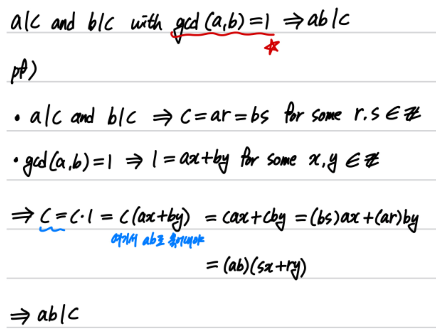 a|c and b|c with gcd(a,b)=1 ⇒ ab|c
pf)
• a|c and b|c ⇒ c=ar=bs for some r,s∈ℤ
• gcd(a,b)=1 ⇒ 1=ax+by for some x,y∈ℤ
⇒ c=c·1=c(ax+by) = cax+cby=(bs)ax+(ar)by
여기서 ab로 묶어내야
=(ab)(sx+ry)
⇒ ab|c